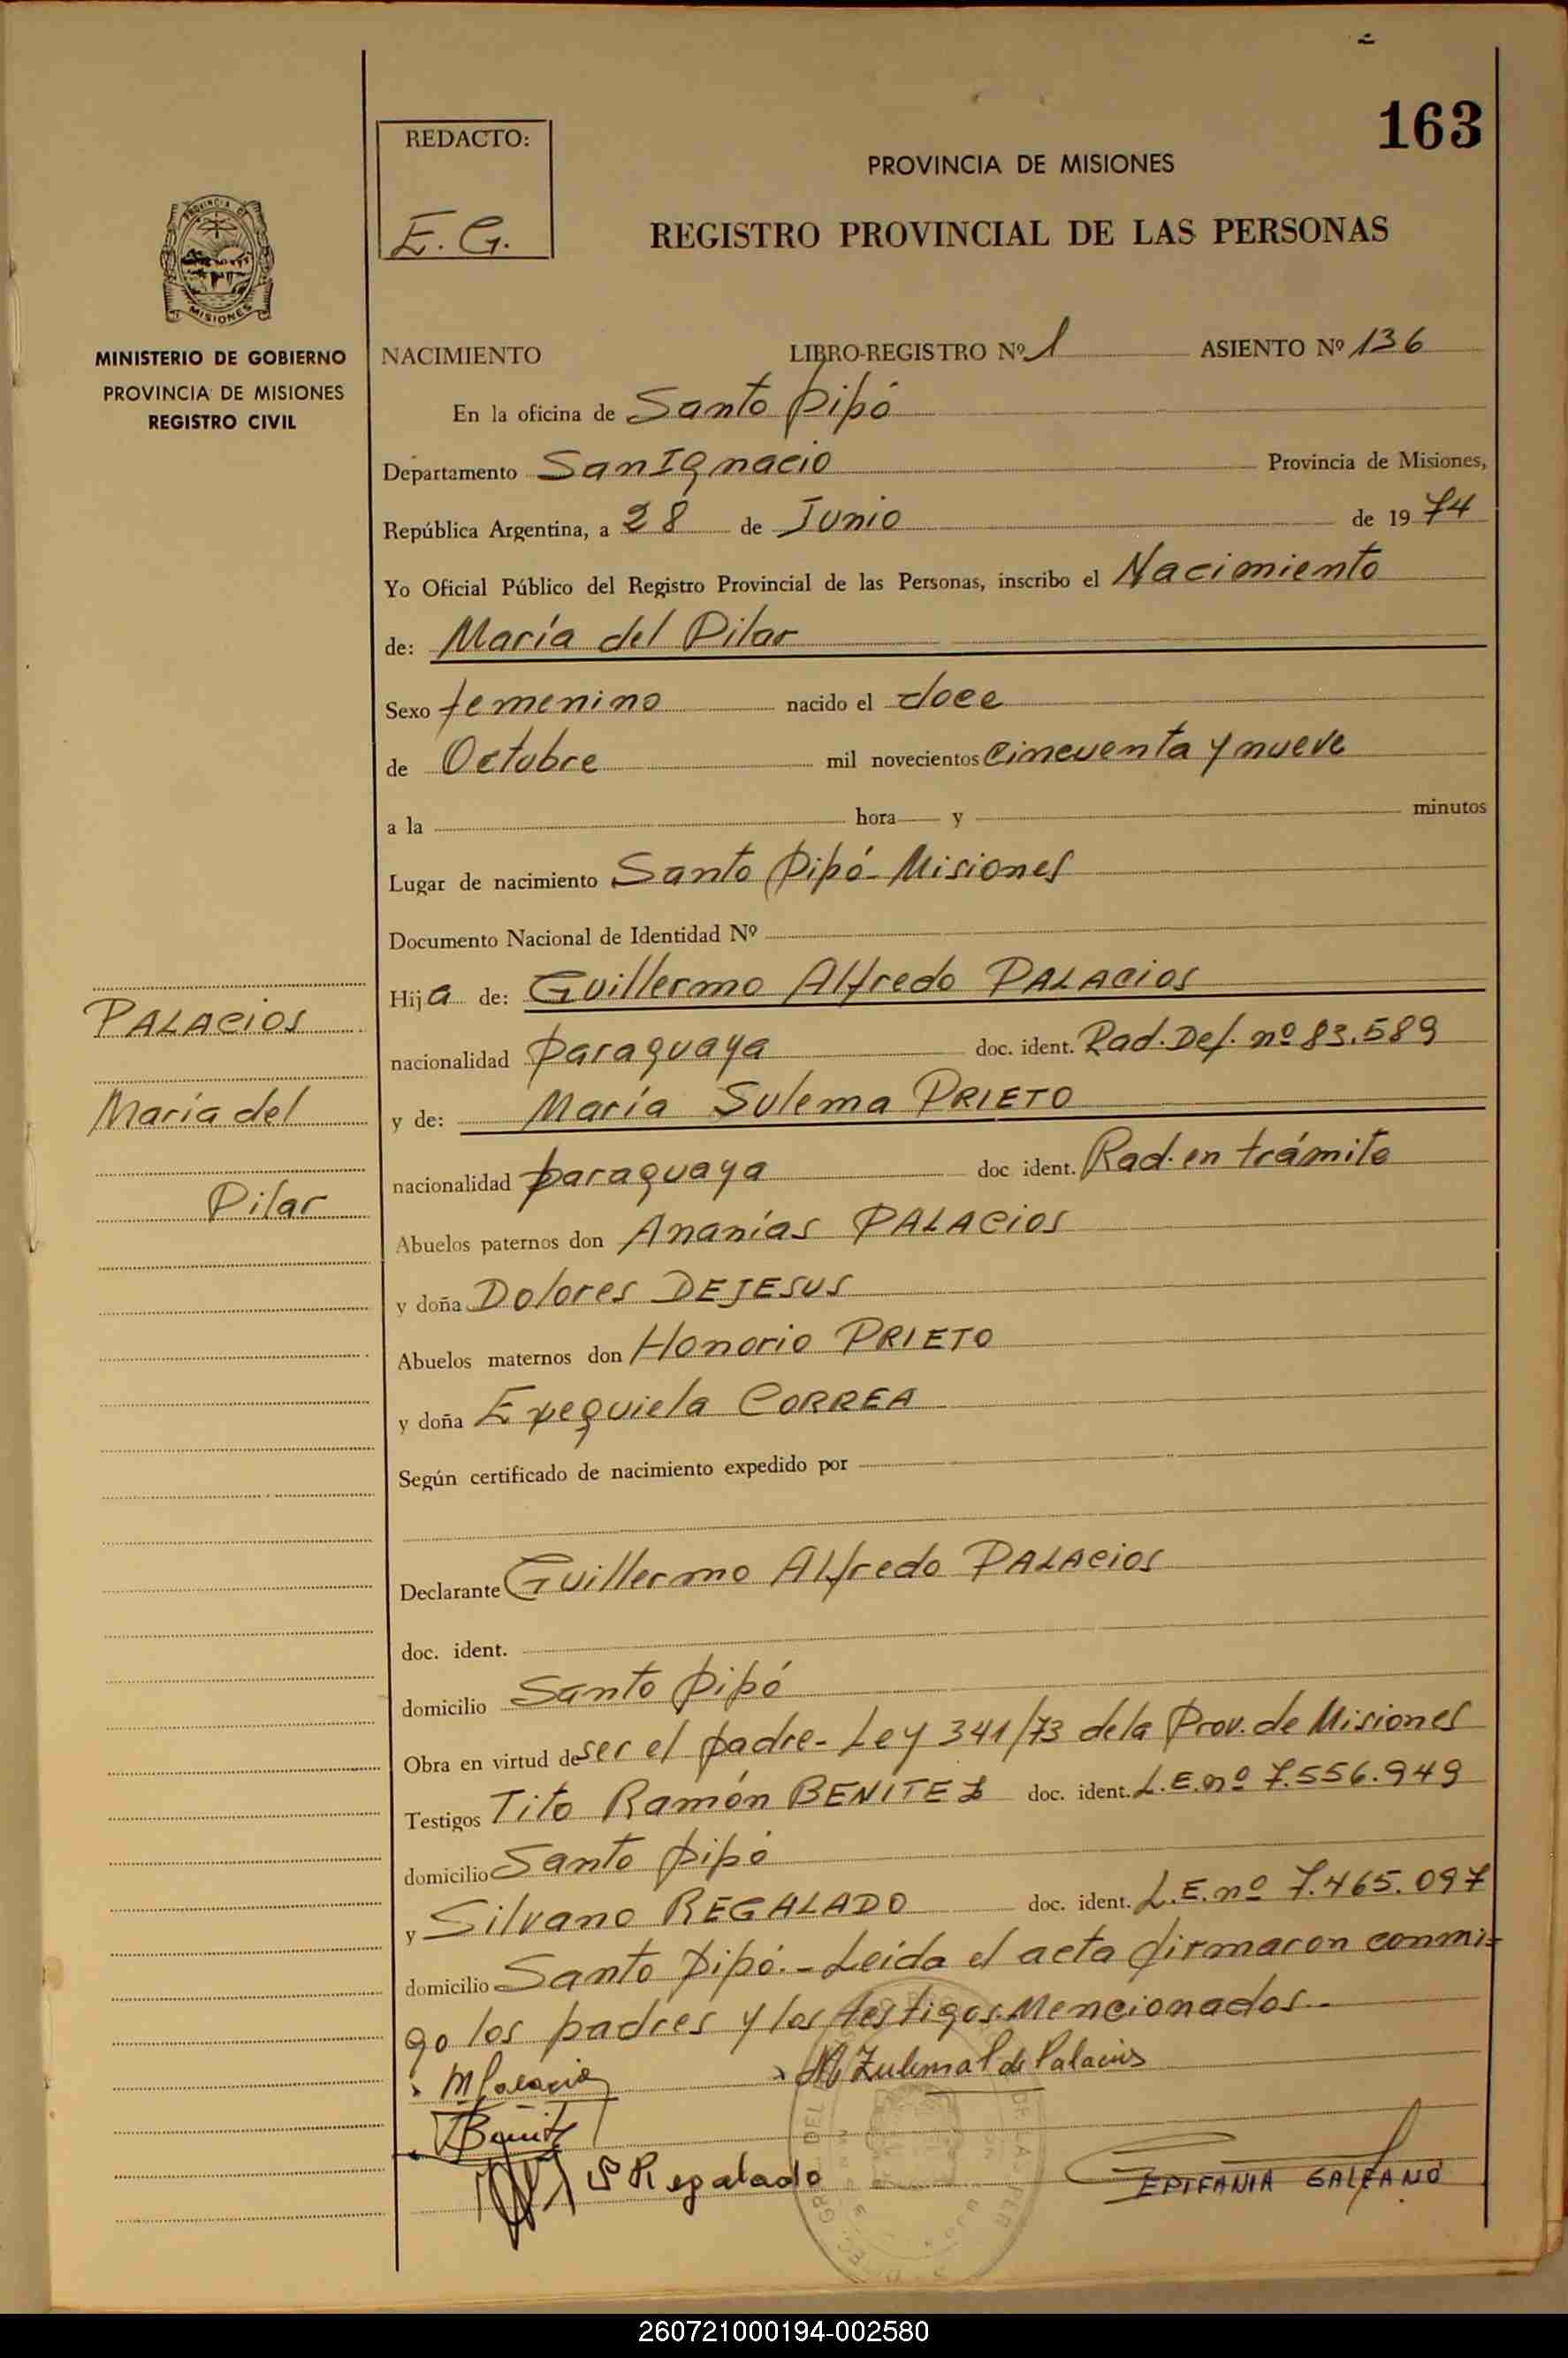 163
REDACTO:
E. G.
PROVINCIA DE MISIONES
REGISTRO PROVINCIAL DE LAS PERSONAS
MISIONES
MINISTERIO DE GOBIERNO
PROVINCIA DE MISIONES
REGISTRO CIVIL
NACIMIENTO LIBRO-REGISTRO Nº 1 ASIENTO Nº 136
En la oficina de Santo Pipó
Departamento San Ignacio Provincia de Misiones,
República Argentina, a 28 de Junio de 1974
Yo Oficial Público del Registro Provincial de las Personas, inscribo el Nacimiento
de: María del Pilar
Sexo femenino nacido el doce
de Octubre mil novecientos cincuenta y nueve
a la hora y minutos
Lugar de nacimiento Santo Pipó- Misiones
Documento Nacional de Identidad Nº
Hija de: Guillermo Alfredo PALACIOS
nacionalidad paraguaya doc. ident. Rad. Def. nº 83.589
y de: María Sulema PRIETO
nacionalidad paraguaya doc ident. Rad. en trámite
Abuelos paternos don Ananías PALACIOS
y doña Dolores DEJESUS
Abuelos maternos don Honorio PRIETO
y doña Exequiela CORREA
Según certificado de nacimiento expedido por
Declarante Guillermo Alfredo PALACIOS
doc. ident.
domicilio Santo Pipó
Obra en virtud de ser el padre- Ley 341/73 de la Prov. de Misiones
Testigos Tito Ramón BENITEZ doc. ident. L.E. nº 7.556.949
domicilio Santo Pipó
y Silvano REGALADO doc. ident. L.E. nº 7.465.097
domicilio Santo Pipó.- Leída el acta firmaron conmi-
go los padres y los testigos Mencionados.-
M Zulema P de Palacios
Benitz
S Regalado
EPIFANIA GALEANO
PALACIOS
María del
Pilar
260721000194-002580